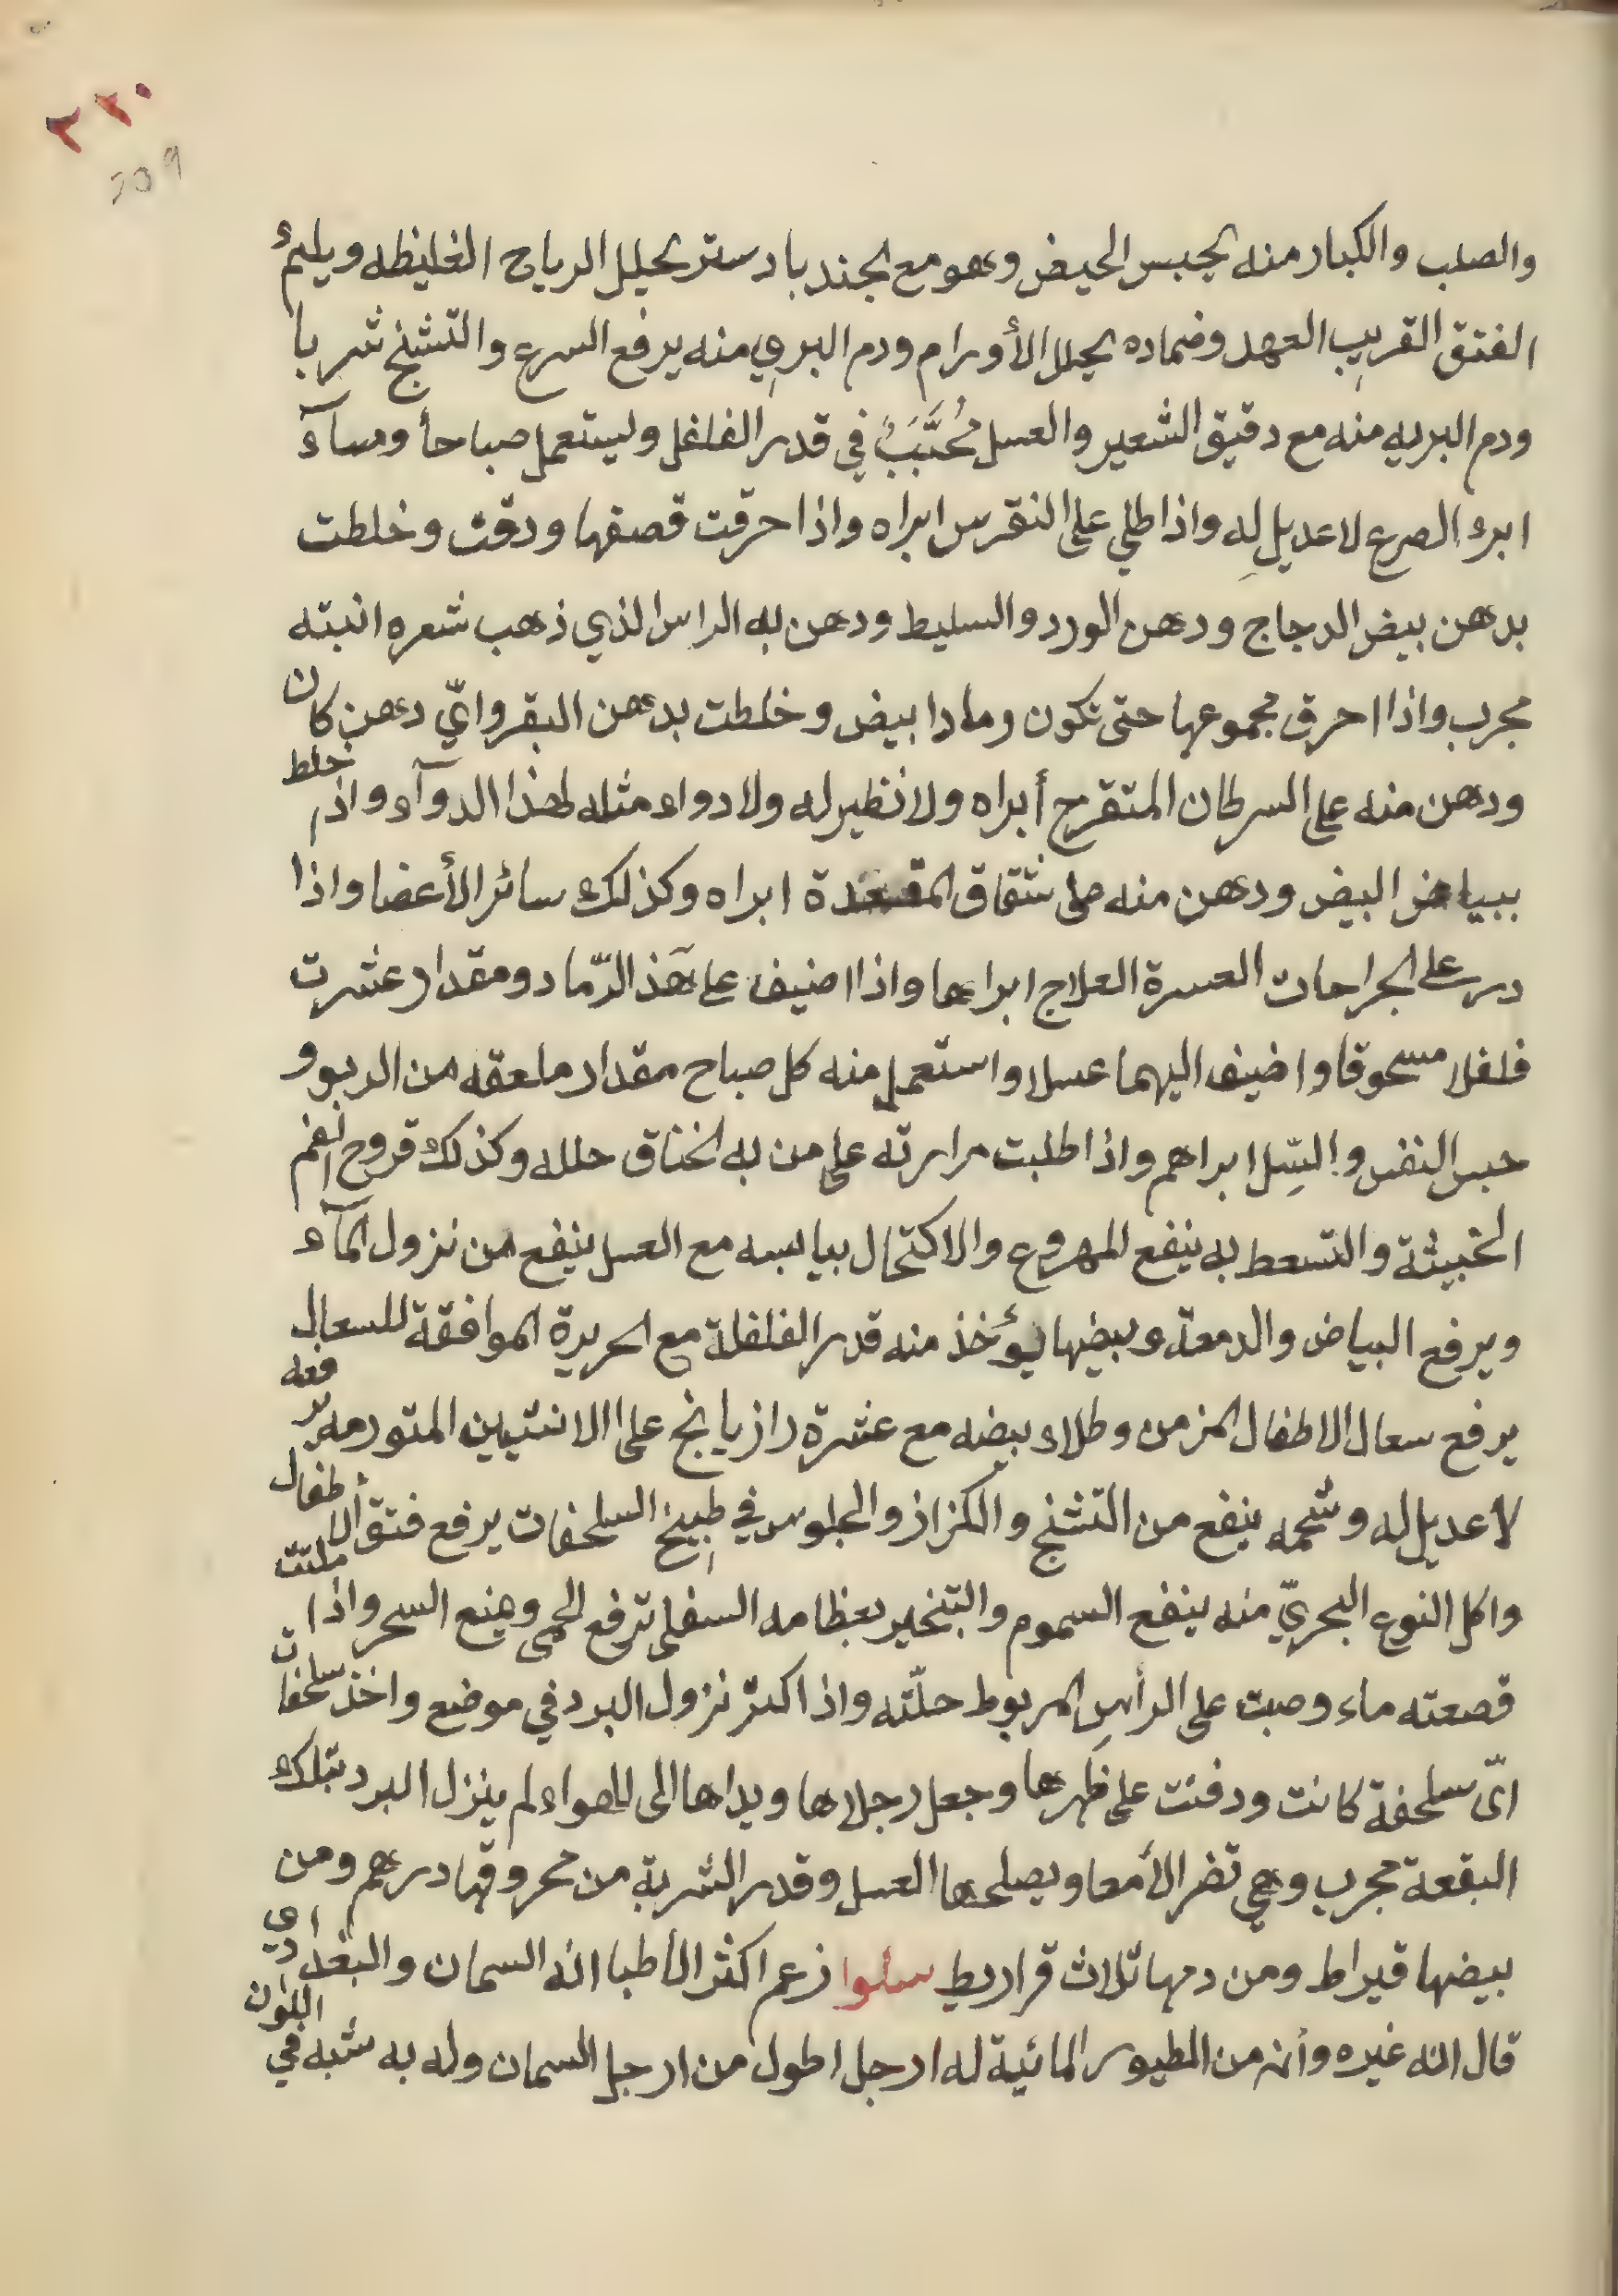 ٢٢٠
209
والصلب والكبار منه يحبس الحيض وهو مع الجندبادستر يحلل الرياح الغليظه ويليم
الفتق القريب العهد وضماده يحلل الأورام ودم البري منه يرفع السرع والتشنج شربا
ودم البريه منه مع دقيق الشعير والعسل مُحَبَّبَ في قدر الفلفل وليستعمل صباحأ ومسآء
ابرء الصرع لا عديل له واذا طلي على النقرس ابراه واذا حرقت قصفها ودقت وخلطت
بدهن بيض الدجاج ودهن الورد والسليط ودهن به الراس الذي ذهب شعره انبته
مجرب واذا احرق مجموعها حتى تكون رمادا ابيض وخلطت بدهن البقر وايّ دهن كان
ودهن منه على السرطان المتقرح أبراه ولا نظير له ولا دواء مثله لهذا الدوآء واذا خلط
ببياض البيض ودهن منه على شقاق المقعدة ابراه وكذلك سائر الأعضا واذا
درر على الجراحات العسرة العلاج ابراها واذا اضيف على هذ الرّماد ومقدار عشرت
فلفلا مسحوقا واضيف اليهما عسلا واستعمل منه كل صباح مقدار ملعقه من الربو و
حبس النفس والسِل ابراهم واذا طلبت مرارته على من به الخناق حلله وكذلك قروح الفم
الخبيثة والتسعط به ينفع المهروع والاكتحال بيابسه مع العسل ينفع من نزول المآء
ويرفع البياض والدمعة وبيضها يؤخذ منه قدر الفلفلة مع الحريرة الموافقة للسعال
يرفع سعال الاطفال المزمن وطلاء بيضه مع عشرة رازيانج على الانتيين المتورمه يرفعه
لا عديل له وشحمه ينفع من التشنج والكزاز والجلوس في طبيخ السلحفات يرفع فتق الأطفال
واكل النوع البحريّ منه ينفع السموم والتبخير بعظامه السفلى ترفع الحمى ويمنع السحر واذا ملئت
قصعته ماء وصبت على الرأس المربوط حلّته واذا اكثر نزول البرد في موضع واخذ سلحفات
ايّ سلحفة كانت ودفنت على ظهرها وجعل رجلاها ويداها الى الهواء لم ينزل البرد بتلك
البقعة مجرب وهي تضر الأمعا ويصلحها العسل وقدر الشربة من محروقها درهم ومن
بيضها قيراط ومن دمها ثلاث قراريط سلوا زعم اكثر الأطبا انه السمان والبغدادي
قال انه غيره وأنه من الطيور المائية له ارجل اطول من ارجل السمان وله به شبه في اللون